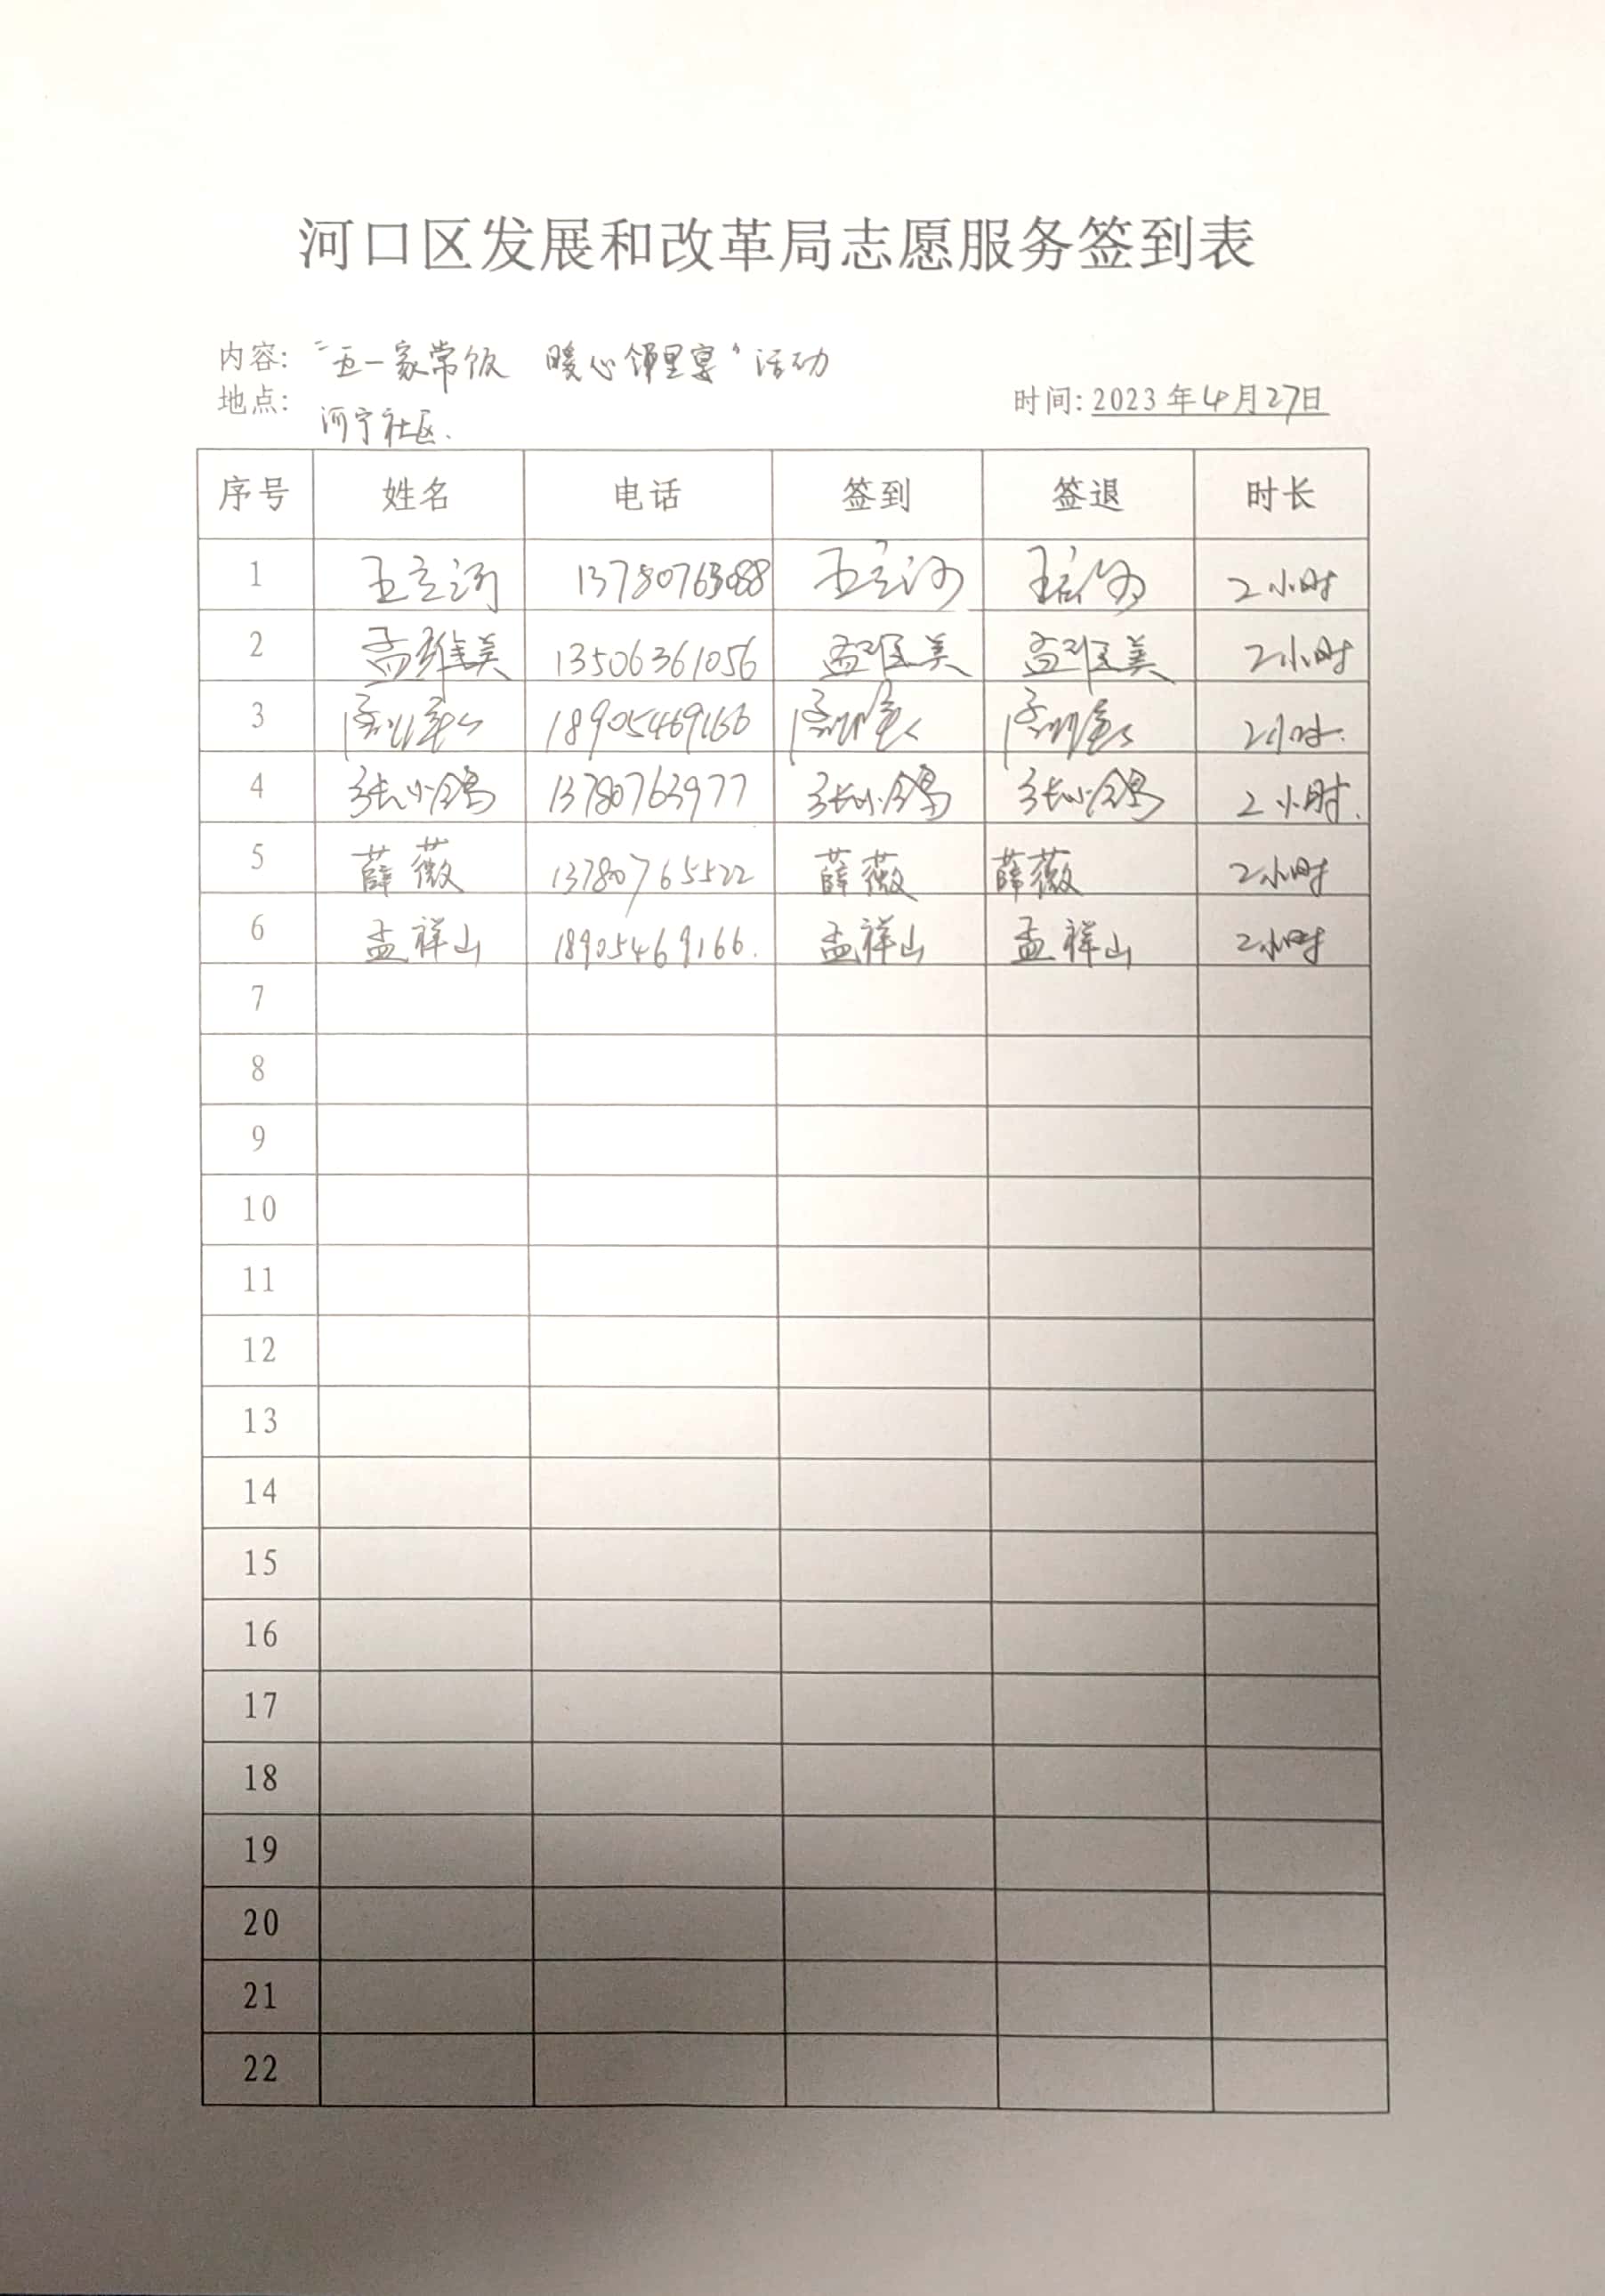 河口区发展和改革局志愿服务签到表
内容: “五一家常饭 暖心邻里宴”活动
地点: 河宁社区.
时间: 2023年4月27日
序号 姓名 电话 签到 签退 时长
1 王立河 13780763088 王立河 王立河 2小时
2 孟维美 13506361056 孟维美 孟维美 2小时
3 18905469166 2小时.
4 张小鸽 13780763977 张小鸽 张小鸽 2小时.
5 薛薇 13780765522 薛薇 薛薇 2小时
6 孟祥山 18905469166. 孟祥山 孟祥山 2小时
7
8
9
10
11
12
13
14
15
16
17
18
19
20
21
22